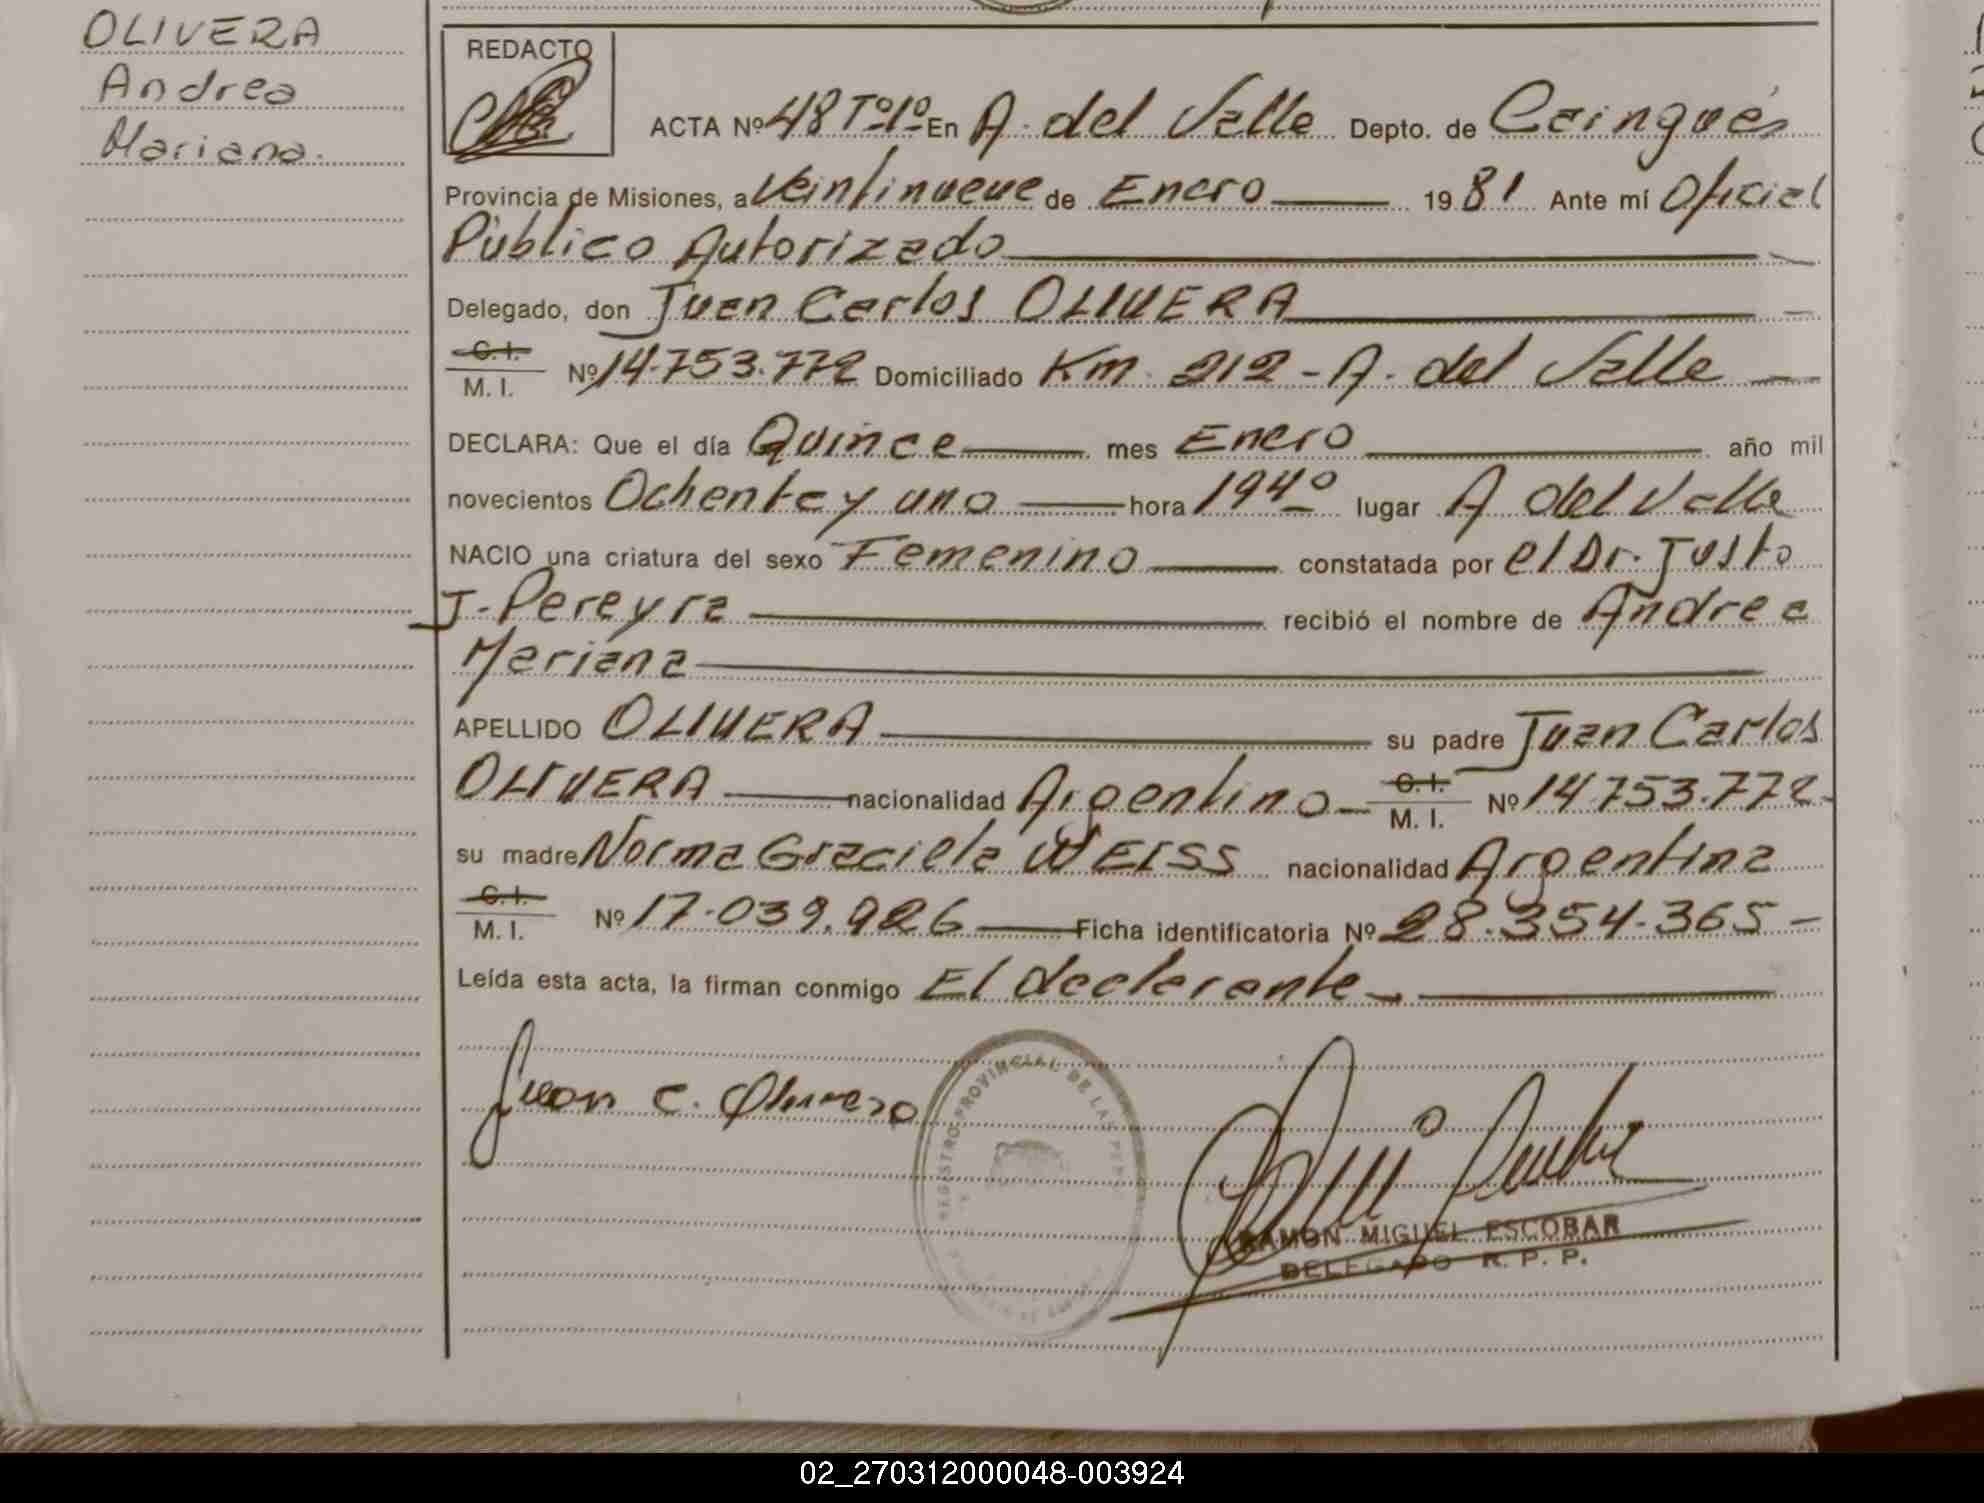 OLIVERA
Andrea
Mariana.
REDACTO
ACTA Nº 48 Tº1º En A. del Valle Depto. de Cainguás
Provincia de Misiones, a Veintinueve de Enero 1981 Ante mí Oficial
Público Autorizado
Delegado, don Juan Carlos OLIVERA
C.I.
M. I. Nº 14.753.772 Domiciliado Km. 212 - A. del Valle
DECLARA: Que el día Quince mes Enero año mil
novecientos Ochenta y uno hora 194º lugar A del Valle
NACIO una criatura del sexo Femenino constatada por el Dr. Justo
J. Pereyra recibió el nombre de Andrea
Mariana
APELLIDO OLIVERA su padre Juan Carlos
OLIVERA nacionalidad Argentino C.I. M. I. Nº 14.753.772
su madre Norma Graciela WEISS nacionalidad Argentina
C.I.
M. I. Nº 17.039.926 Ficha identificatoria Nº 28.354.365
Leída esta acta, la firman conmigo El declarante
Juan C. Olivera
REGISTRO PROVINCIAL DE LAS PERS
RAMON MIGUEL ESCOBAR
DELEGADO R. P. P.
02_270312000048-003924